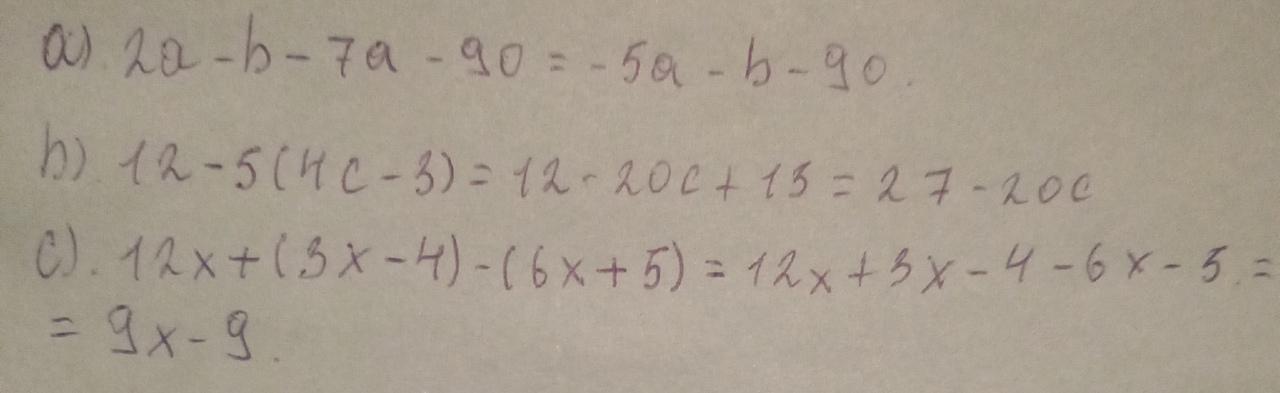 a) 2a - b - 7a - 90 = -5a - b - 90.
b) 12 - 5(4c - 3) = 12 - 20c + 15 = 27 - 20c
c). 12x + (3x - 4) - (6x + 5) = 12x + 3x - 4 - 6x - 5 =
= 9x - 9.